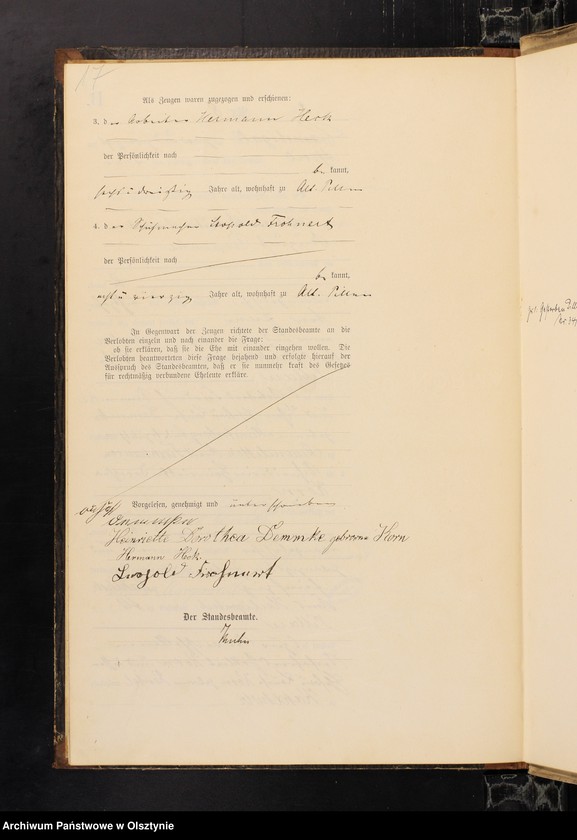 17
Als Zeugen waren zugezogen und erschienen:
3. der Arbeiter Hermann Heck
der Persönlichkeit nach
bekannt,
sechsunddreißig Jahre alt, wohnhaft zu Alt Pillau
4. der Schuhmacher Leopold Frohnert
der Persönlichkeit nach
bekannt,
achtundvierzig Jahre alt, wohnhaft zu Alt Pillau
In Gegenwart der Zeugen richtete der Standesbeamte an die
Verlobten einzeln und nach einander die Frage:
ob sie erklären, daß sie die Ehe mit einander eingehen wollen. Die
Verlobten beantworteten diese Frage bejahend und erfolgte hierauf der
Ausspruch des Standesbeamten, daß er sie nunmehr kraft des Gesetzes
für rechtmäßig verbundene Eheleute erkläre.
Vorgelesen, genehmigt und unterschrieben
Heinriette Dorothea Demmke geborene Horn
Hermann Heck
Leopold Frohnert
Der Standesbeamte.
Archiwum Państwowe w Olsztynie